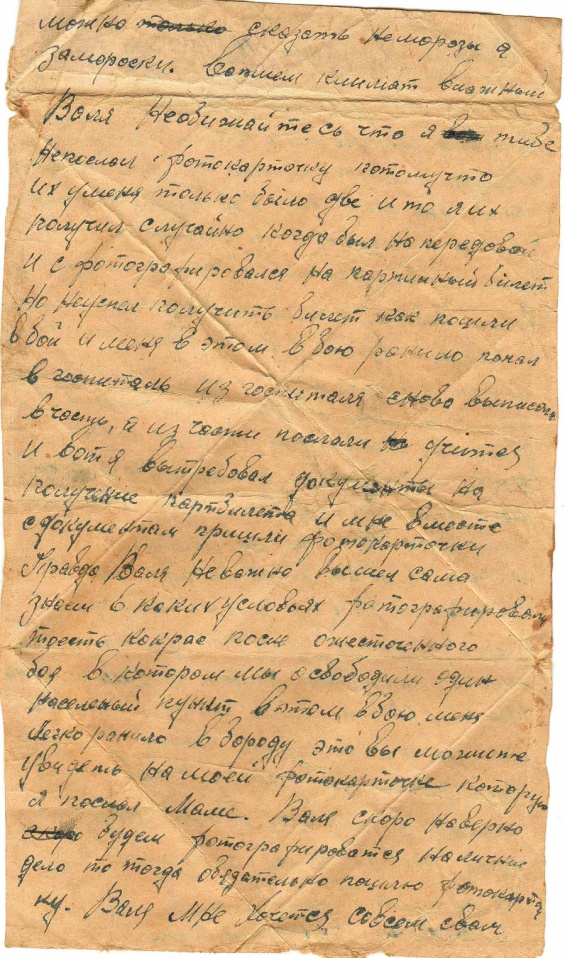 можно сказать неморозы а
заморозки. Вопшем климат влажный
Валя Необижайтесь что я тибе
Непослал фотокарточку потомучто
их уменя только было две и то я их
получил случайно когда был на передовой
И с фотографировался на партийный билет
Но неуспел получить билет как пошли
в бой и меня в этом в бою ранило попал
в госпиталь из госпиталя снова выписали
в часть, а из части послали учится
И вот я вытребовал документы на
получение партбилета и мне вместе
сдокументам пришли фотокарточки
Правда Валя неважно вышел сама
знаеш в каких условьях фотографировали
тоесть какрас после ожесточенного
боя в котором мы освободили один
населеный пункт в этом в бою меня
легко ранило в бороду это вы можите
увидеть на моей фотокарточке которую
я послал Маме. Валя скоро наверно
будем фотографироватся на личние
дело то тогда обязательно пошлю фотокарточ
ку. Валя мне хочется совсем